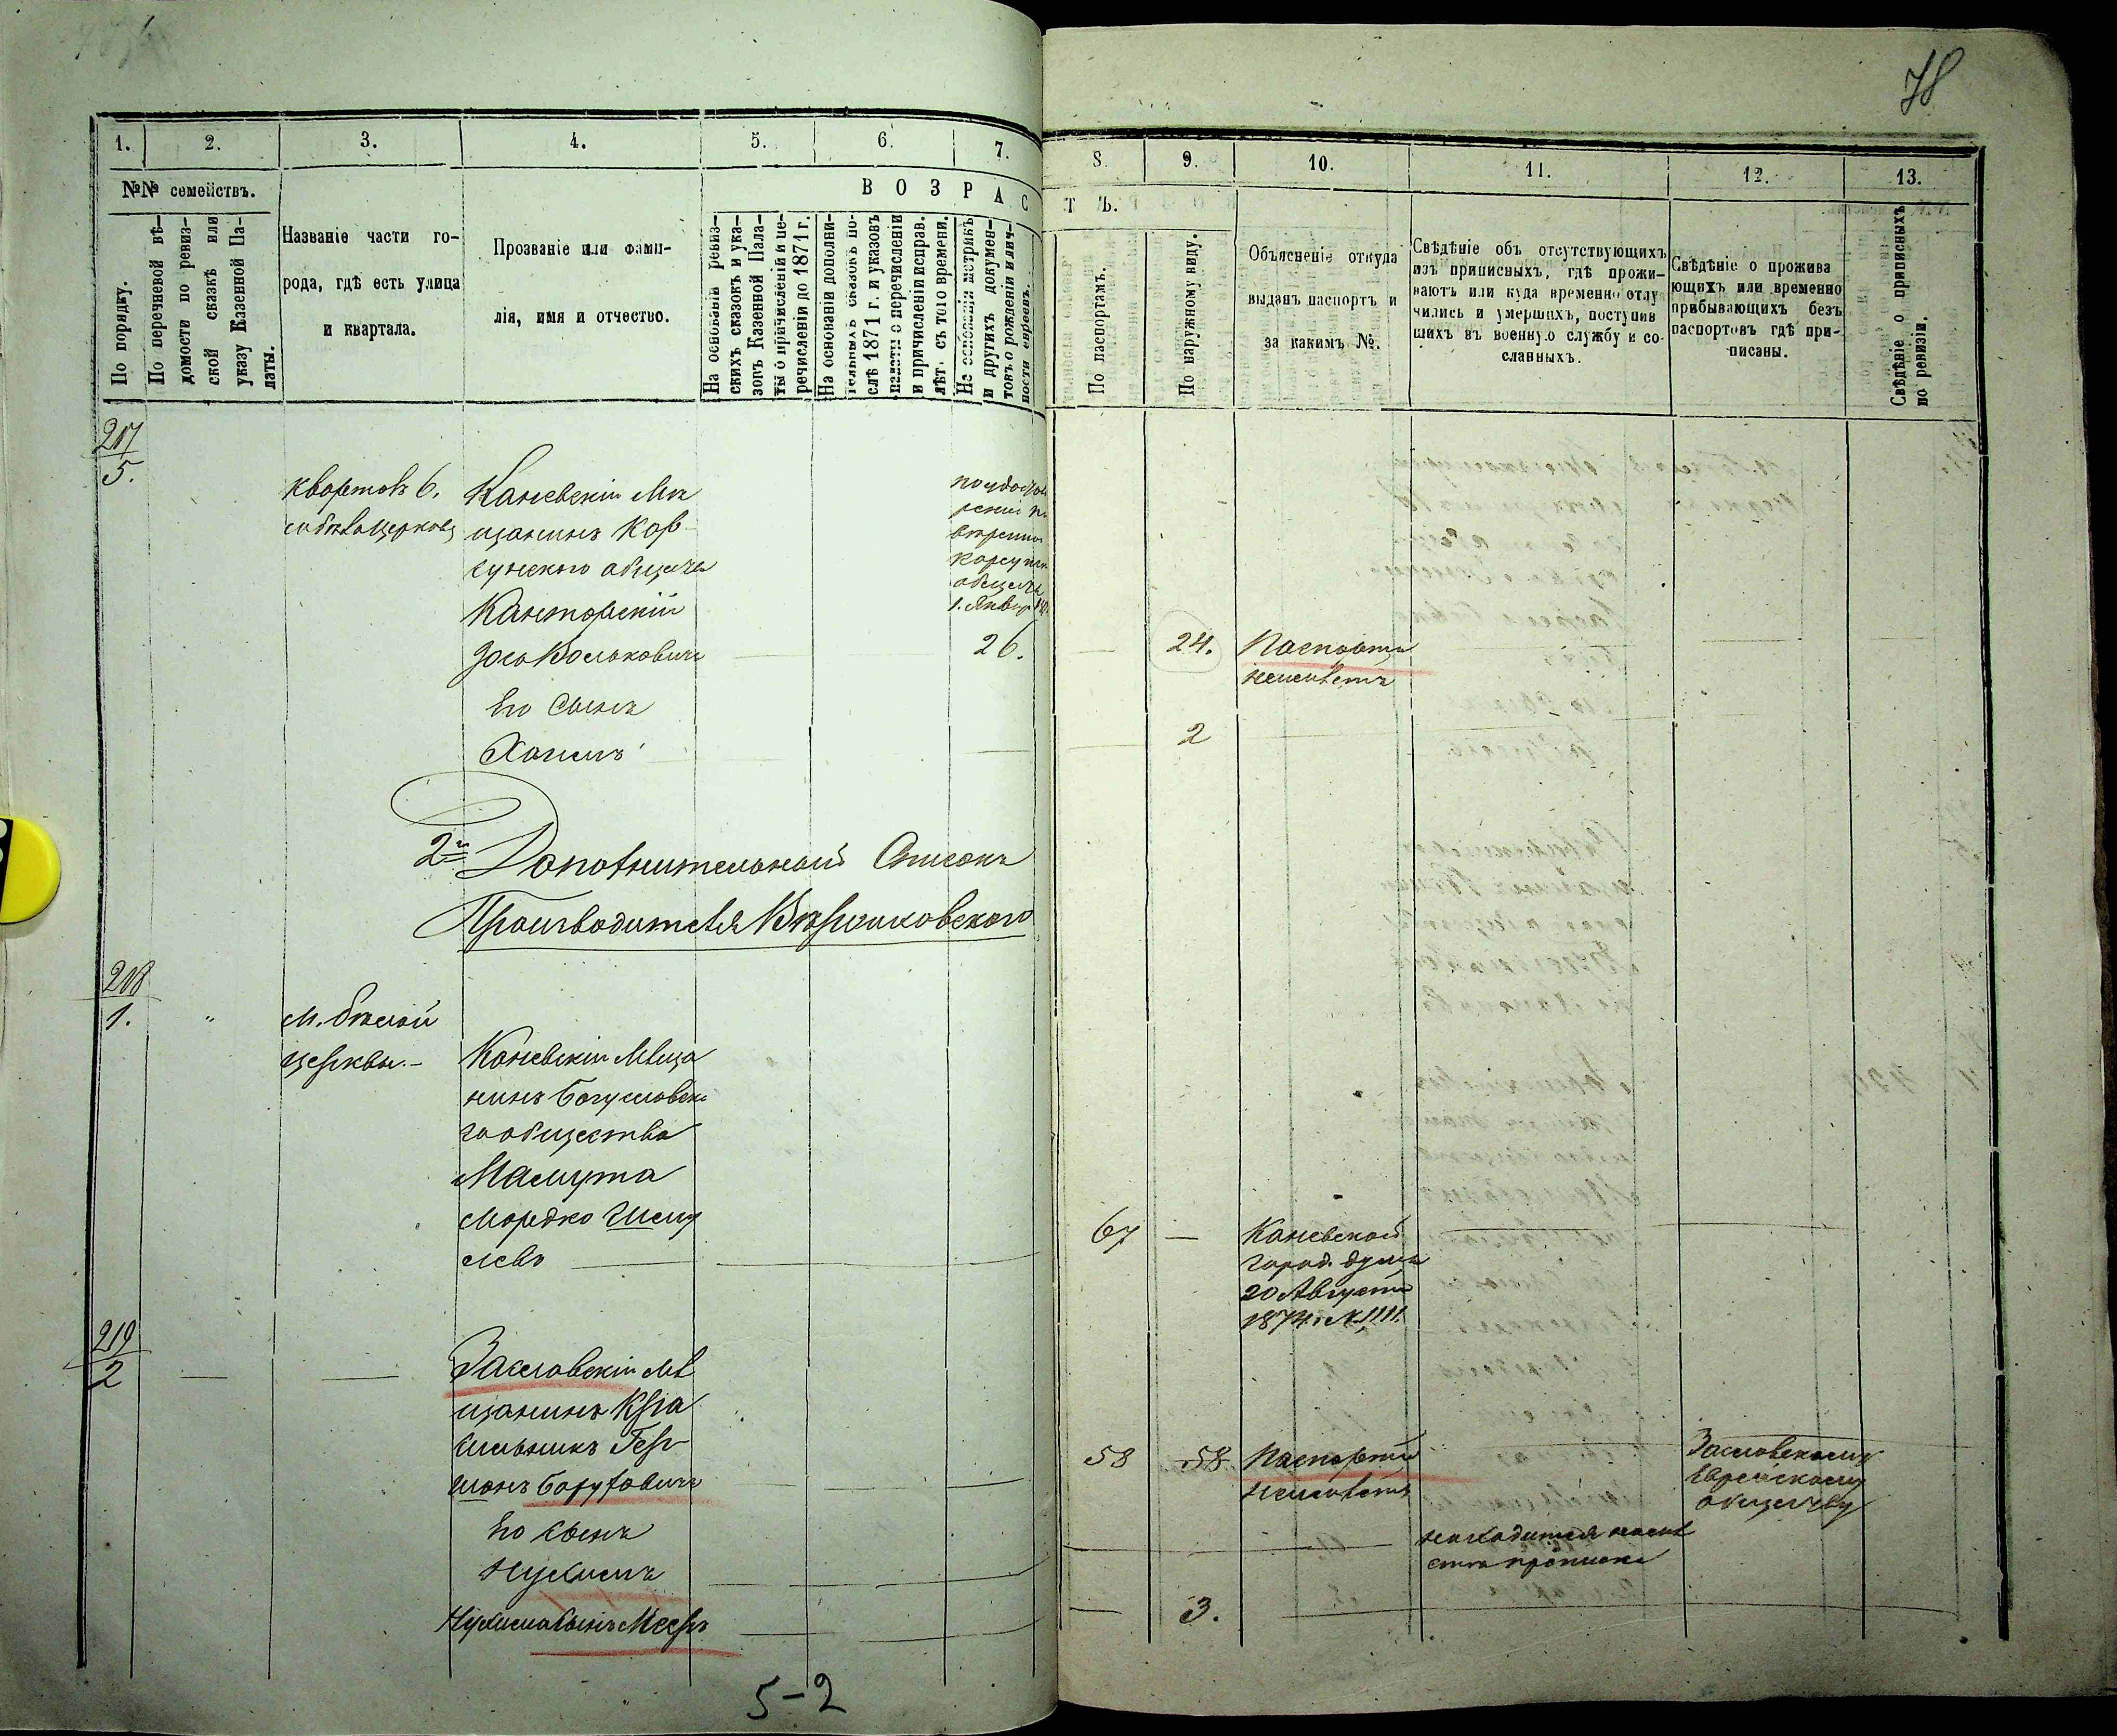 78
1.
2.
3.
4.
5.
6.
7.
8.
9.
10.
11.
12.
13.
№№ семействъ.
По порядку.
По перечневой вѣ-
домости по ревиз-
ской сказкѣ или
указу Казенной Па-
латы.
Названіе части го-
рода, гдѣ есть улица
и квартала.
Прозваніе или фами-
лія, имя и отчество.
ВОЗРАС
ТЪ.
На основаніи ревиз-
скихъ сказокъ и ука-
зовъ Казенной Пала-
ты о причисленіи и пе-
речисленіи до 1871 г.
На основаніи дополни-
тельныхъ сказокъ по-
слѣ 1871 г. и указовъ
палаты о перечисленіи
и причисленіи исправ.
лѣтъ съ того времени.
На основаніи метрикъ
и другихъ докумен-
товъ о рожденіи и лич-
ности евреевъ.
По паспортамъ.
По наружному виду.
Объясненіе откуда
выданъ паспортъ и
за какимъ №.
Свѣдѣніе объ отсутствующихъ
изъ приписныхъ, гдѣ прожи-
ваютъ или куда временно отлу
чились и умершихъ, поступив
шихъ въ военную службу и со-
сланныхъ.
Свѣдѣніе о прожива
ющихъ или временно
прибывающихъ безъ
паспортовъ гдѣ при-
писаны.
Свѣдѣніе о приписныхъ
по ревизіи.
217
5.
Каневскій Мѣ
щанинъ Кор
сунскаго общества
Канторскій
1. Январ
26.
24.
Паспорта
неимѣетъ
Его Сынъ
2
2й Дополнительный Списокъ
Производителя
218
1.
м. бѣлой
церкви.-
Каневскій Мѣща
нинъ Богуславска
го общества
Маслута
Мордко Шму
левъ
67
Каневской
город. думы
20 Августа
1874. № 1111.
219
2
Заславскій Мѣ
щанинъ
Гер
шонъ Боруховичъ
58
58
Паспорта
неимѣетъ
Заславскому
Еврейскому
обществу
Его сынъ
Нухимъ
находится на мѣ
стѣ приписки
Нухима сынъ Мееръ
3.
5-2